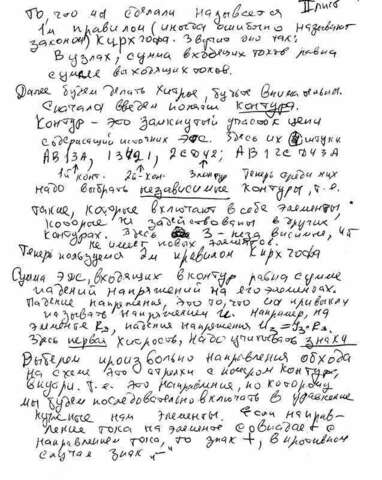 То, что мы сделали называется II лист
1м правилом (иногда ошибочно называют
законом) Кирхгофа. Звучит оно так:
В узлах, сумма входящих токов равна
сумме выходящих токов.
Далее будем делать хитрое, будьте внимательны.
Сначала введем понятие контура.
Контур - это замкнутый участок цепи
содержащий источник ЭДС. Здесь их штуки
1й конт. 2й конт. Теперь среди них
надо выбрать независимые контуры, т.е.
такие, которые включают в себя элементы,
которые не задействованы в других
контурах. Здесь 3 - независимые,
не имеет новых элементов.
Теперь пользуемся 2м правилом Кирхгофа
Сумма ЭДС, входящих в контур равна сумме
падений напряжений на его элементах.
Падение напряжения, это то, что мы привыкли
называть напряжением U. Например, на
элементе падения напряжения
Здесь первая хитрость, надо учитывать знаки
Выберем произвольно направления обхода
на схеме это стрелки с номером контура,
внутри. Т.е. это направления, по которому
мы будем последовательно включать в уравнение
нужные нам элементы. Если направ-
ление тока на элементе совпадает с
направлением тока, то знак +, в противном
случае знак "-"